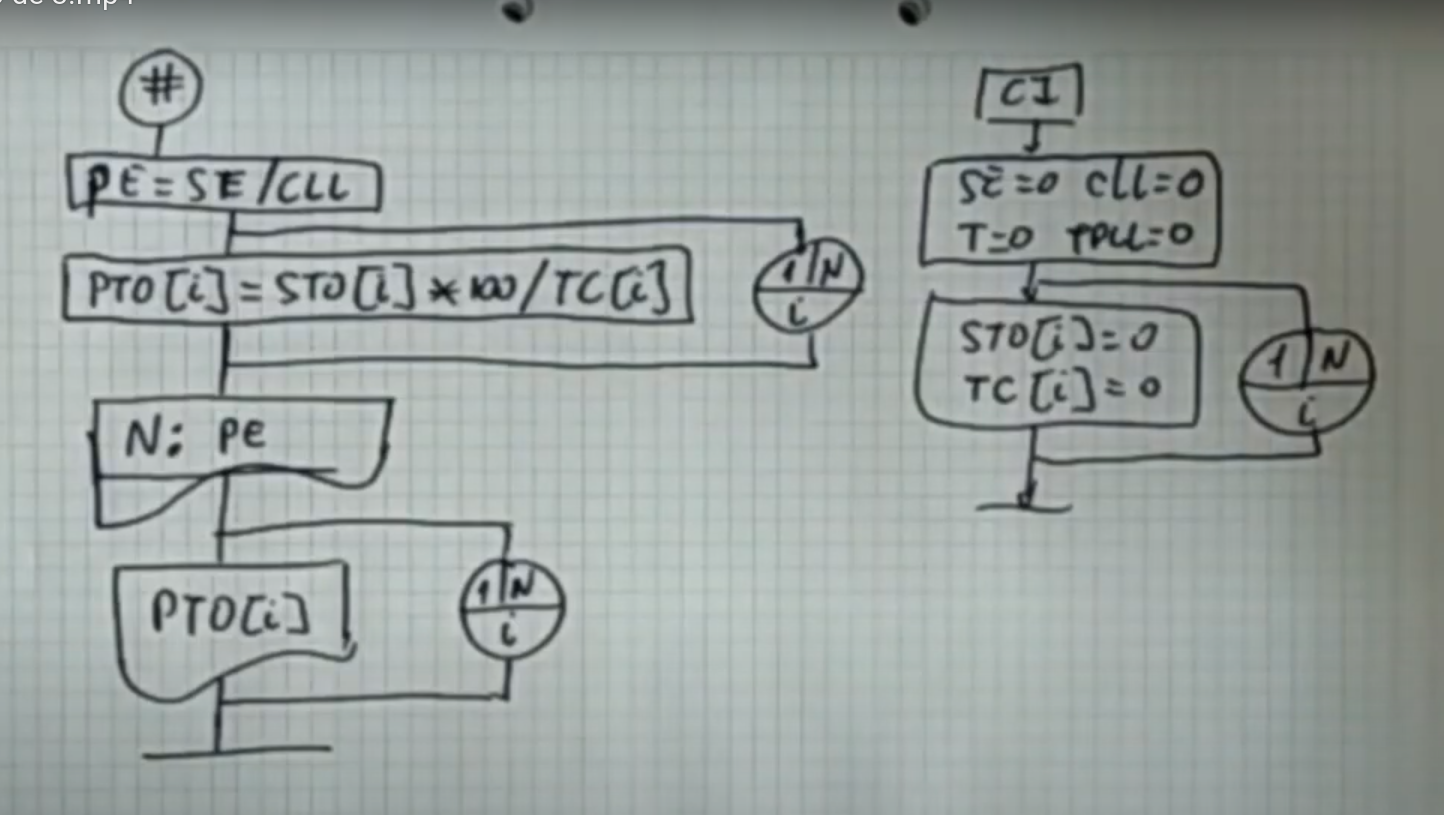 de 3.mp4
#
PE = SE / CLL
PTO[i] = STO[i] * 100 / TC[i]
1 N
i
N: PE
PTO[i]
1 N
i
CI
SE=0 CLL=0
T=0 TPLL=0
STO[i]=0
TC[i]=0
1 N
i